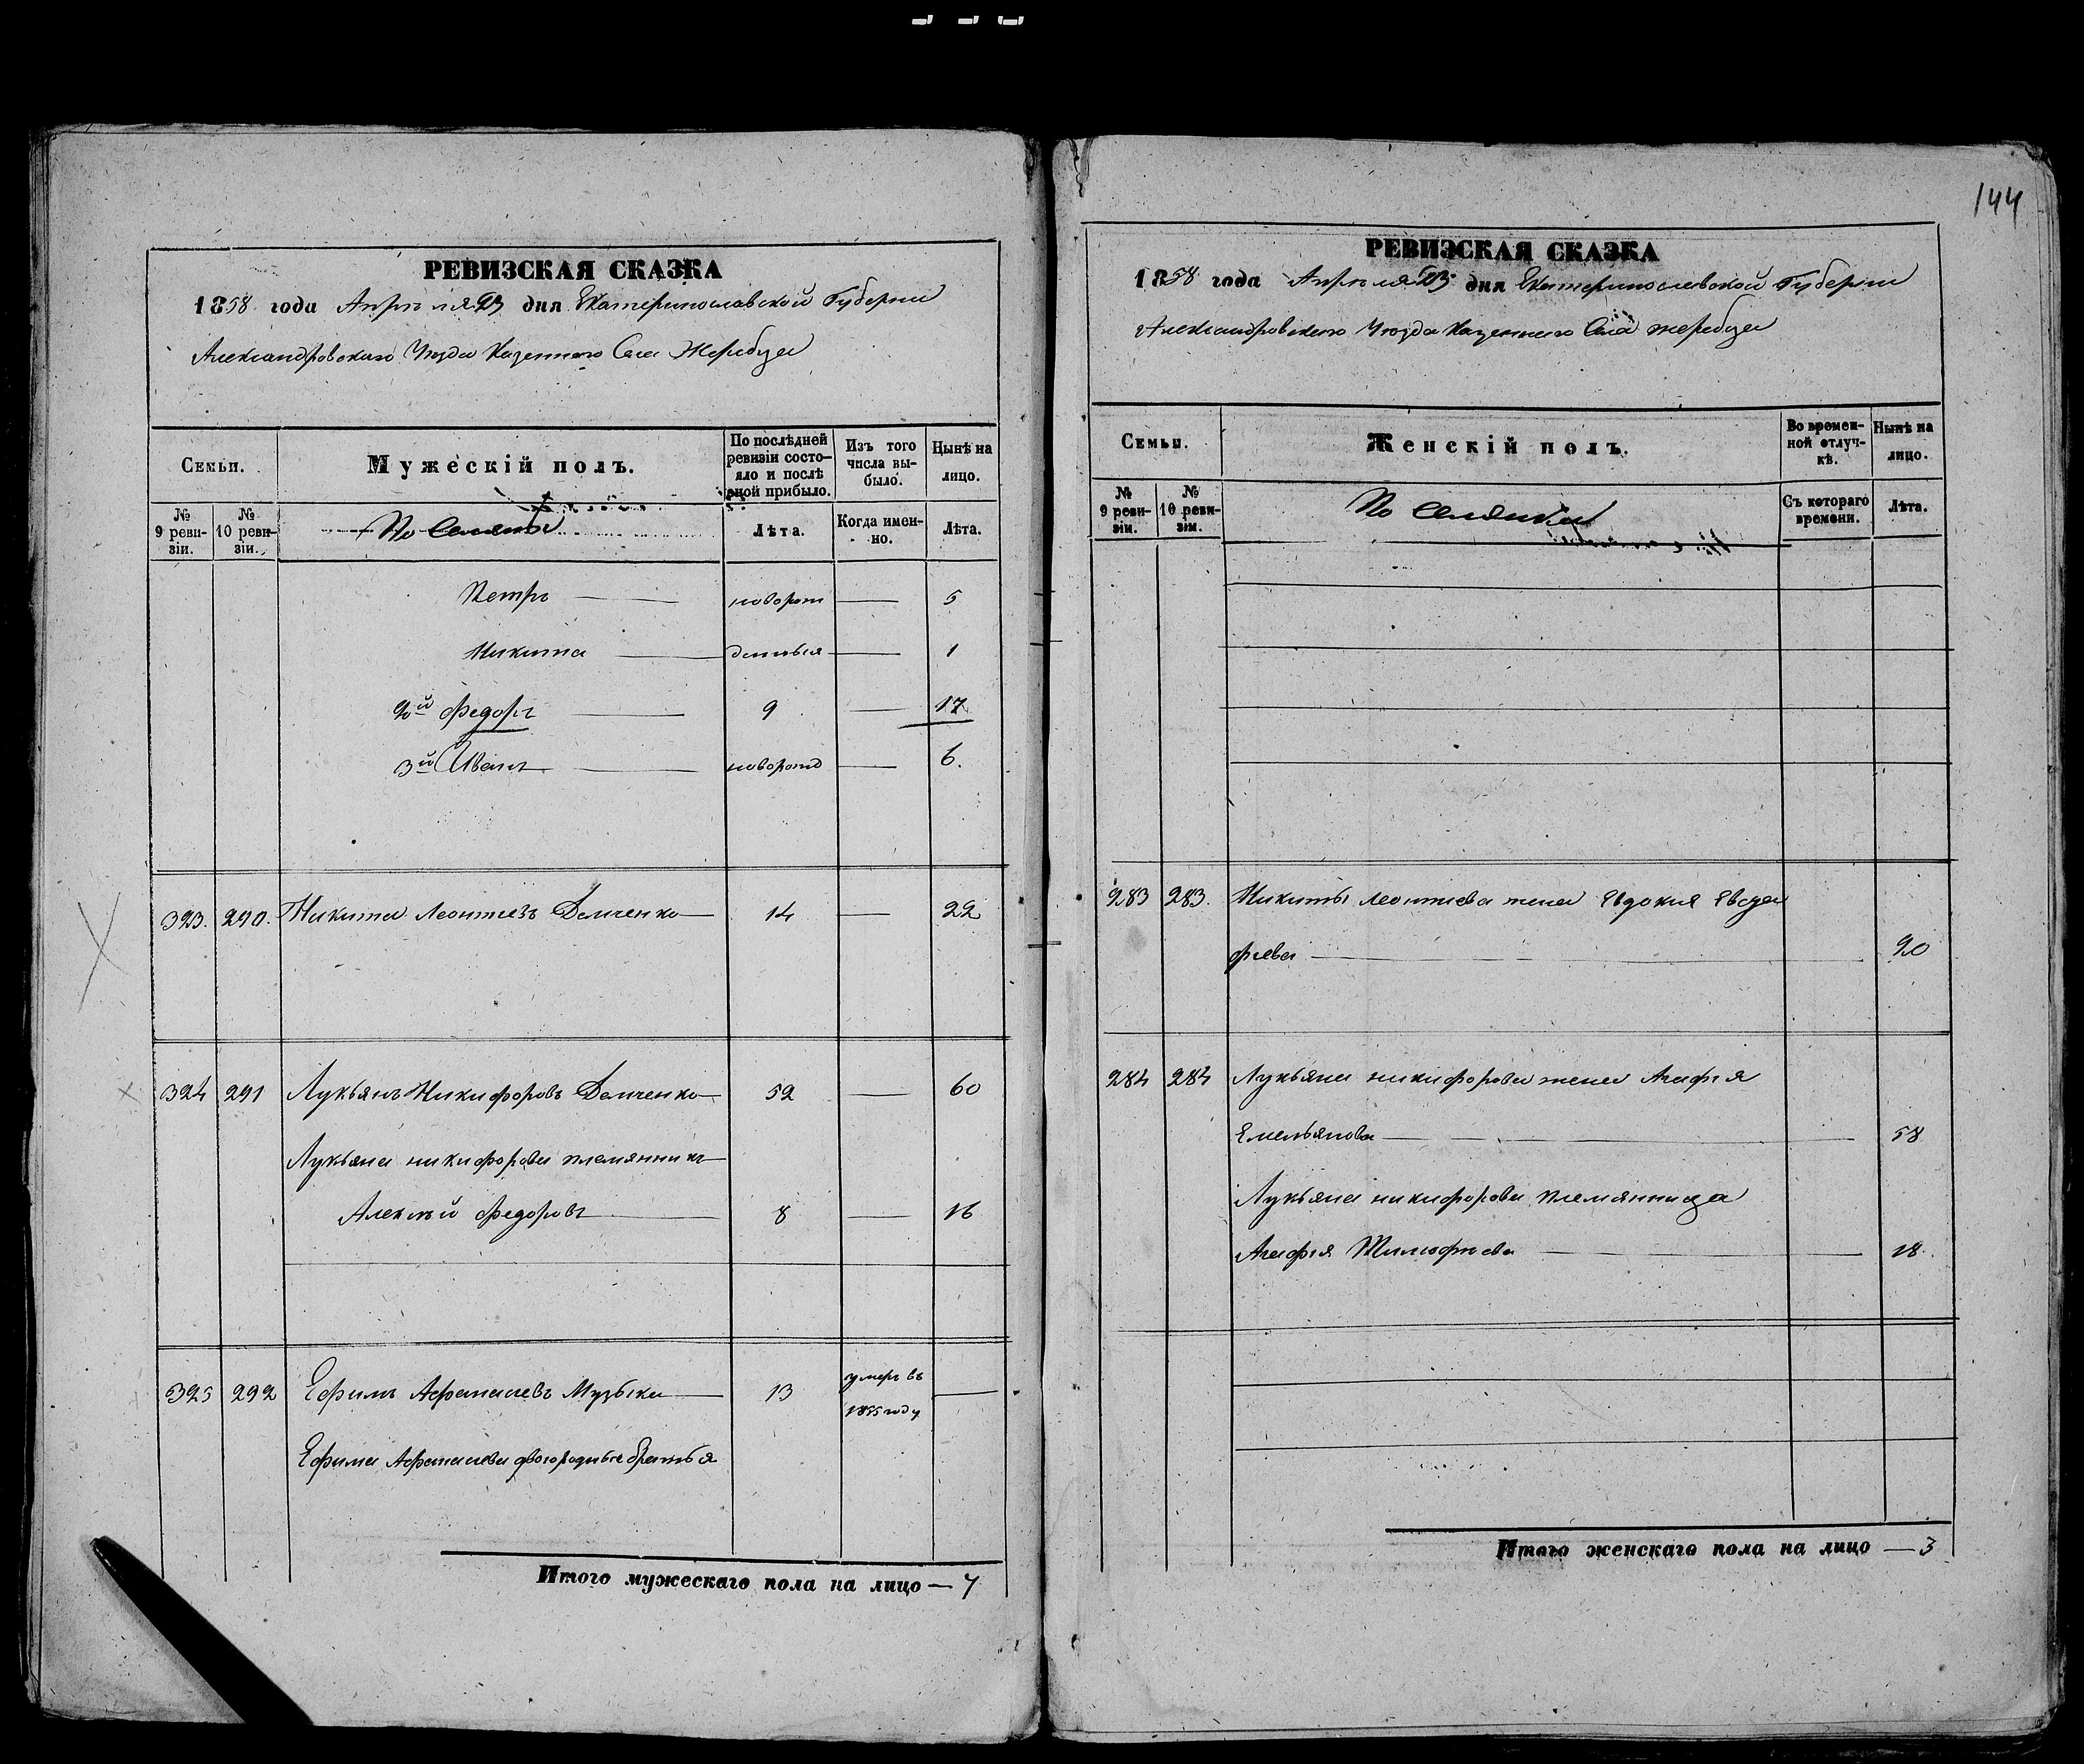 РЕВИЗСКАЯ СКАЗКА
1858 года Апреля 23 дня Екатеринославской Губернии
Александровскаго Уезда Казеннаго Села Жеребца
Семьи.
Мужескій полъ.
По послѣдней ревизіи состояло и послѣ оной прибыло.
Изъ того числа выбыло.
Нынѣ на лицо.
№ 9 ревизіи.
№ 10 ревизіи.
Поселяны
Лѣта.
Когда именно.
Лѣта.
Петръ — новорож — 5
Никита — — 1
2й Федоръ — 9 — 17
3й Иванъ — новорожд — 6.
323. 290. Никита Леонтьевъ Демченко — 14 — 22
324 291 Лукьянъ Никифоровъ Демченко — 52 — 60
Лукьяна Никифорова племянникъ
Алексѣй Федоровъ — 8 — 16
325 292 Ефимъ Афанасиевъ Музыка — 13 умеръ въ 1855 году —
Ефима Афанасиева двоюродные братья
Итого мужескаго пола на лицо — 7
144
РЕВИЗСКАЯ СКАЗКА
1858 года Апреля 23 дня Екатеринославской Губернии
Александровскаго Уезда Казеннаго Села Жеребца
Семьи.
Женскій полъ.
Во временной отлучкѣ.
Нынѣ на лицо.
№ 9 ревизіи.
№ 10 ревизіи.
Поселянки
Съ котораго времени.
Лѣта.
283 283. Никиты Леонтиева жена Евдокия Евста
фиева — 20
284 284 Лукьяна Никифорова жена Агафія
Емельянова — 58
Лукьяна Никифорова племянница
Агафія Тимофѣева — 18.
Итого женскаго пола на лицо — 3